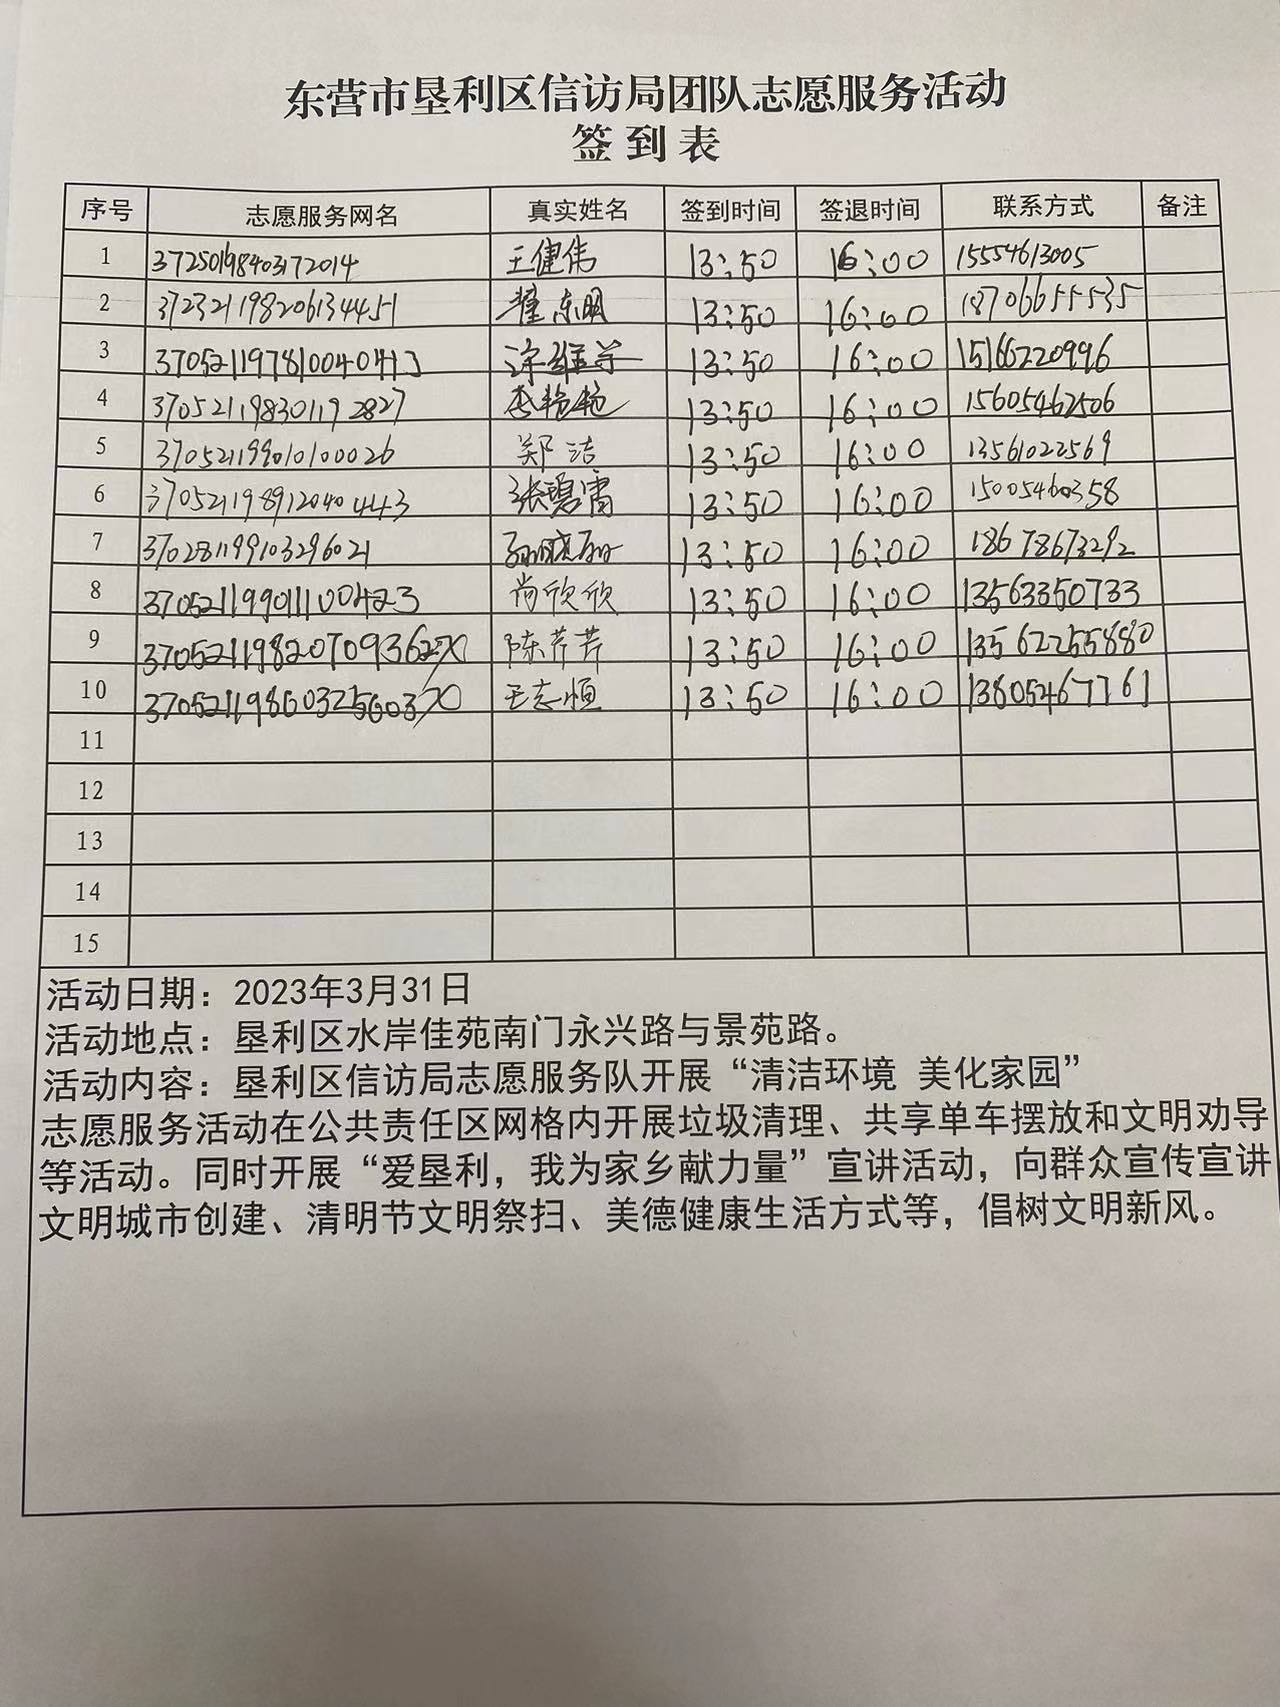 东营市垦利区信访局团队志愿服务活动
签到表
序号 志愿服务网名 真实姓名 签到时间 签退时间 联系方式 备注
1 372501198403172014 王健伟 13:50 16:00 15554613005
2 372321198206134451 东明 13:50 16:00 18706655535
3 13:50 16:00 15166220996
4 370521198301192827 李艳艳 13:50 16:00 15605462506
5 370521199010100026 郑洁 13:50 16:00 13561022569
6 370521198912040443 张碧霄 13:50 16:00 15005460358
7 370281199103296021 13:50 16:00 18678673292
8 370521199011100423 尚欣欣 13:50 16:00 13563350733
9 37052119820709362X 陈芹芹 13:50 16:00 13562255880
10 37052119860325603X 王志恒 13:50 16:00 13805467761
11
12
13
14
15
活动日期：2023年3月31日
活动地点：垦利区水岸佳苑南门永兴路与景苑路。
活动内容：垦利区信访局志愿服务队开展“清洁环境 美化家园”
志愿服务活动在公共责任区网格内开展垃圾清理、共享单车摆放和文明劝导
等活动。同时开展“爱垦利，我为家乡献力量”宣讲活动，向群众宣传宣讲
文明城市创建、清明节文明祭扫、美德健康生活方式等，倡树文明新风。